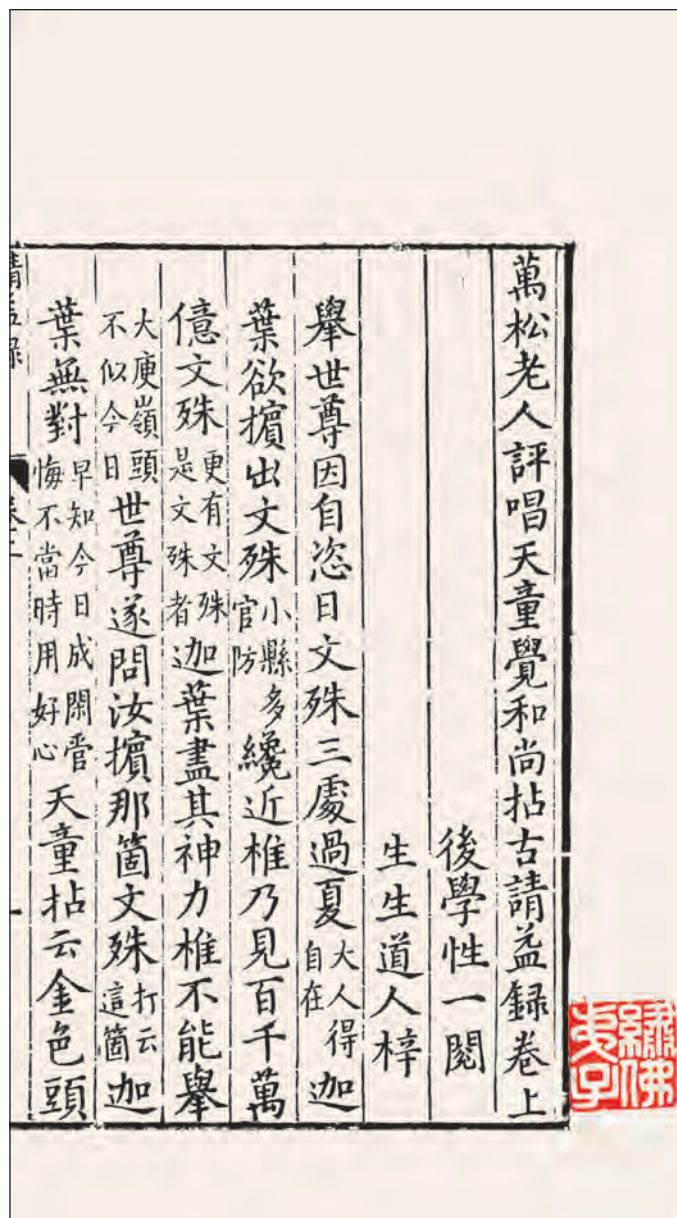 萬松老人評唱天童覺和尚拈古請益録卷上
後學性一閱
生生道人梓
舉世尊因自恣日文殊三處過夏大人得自在迦
葉欲擯出文殊小縣多官防纔近椎乃見百千萬
億文殊更有文殊是文殊者迦葉盡其神力椎不能舉
大庾嶺頭不似今日世尊遂問汝擯那箇文殊打云這箇迦
葉無對早知今日成閑管悔不當時用好心天童拈云金色頭
請益録
一